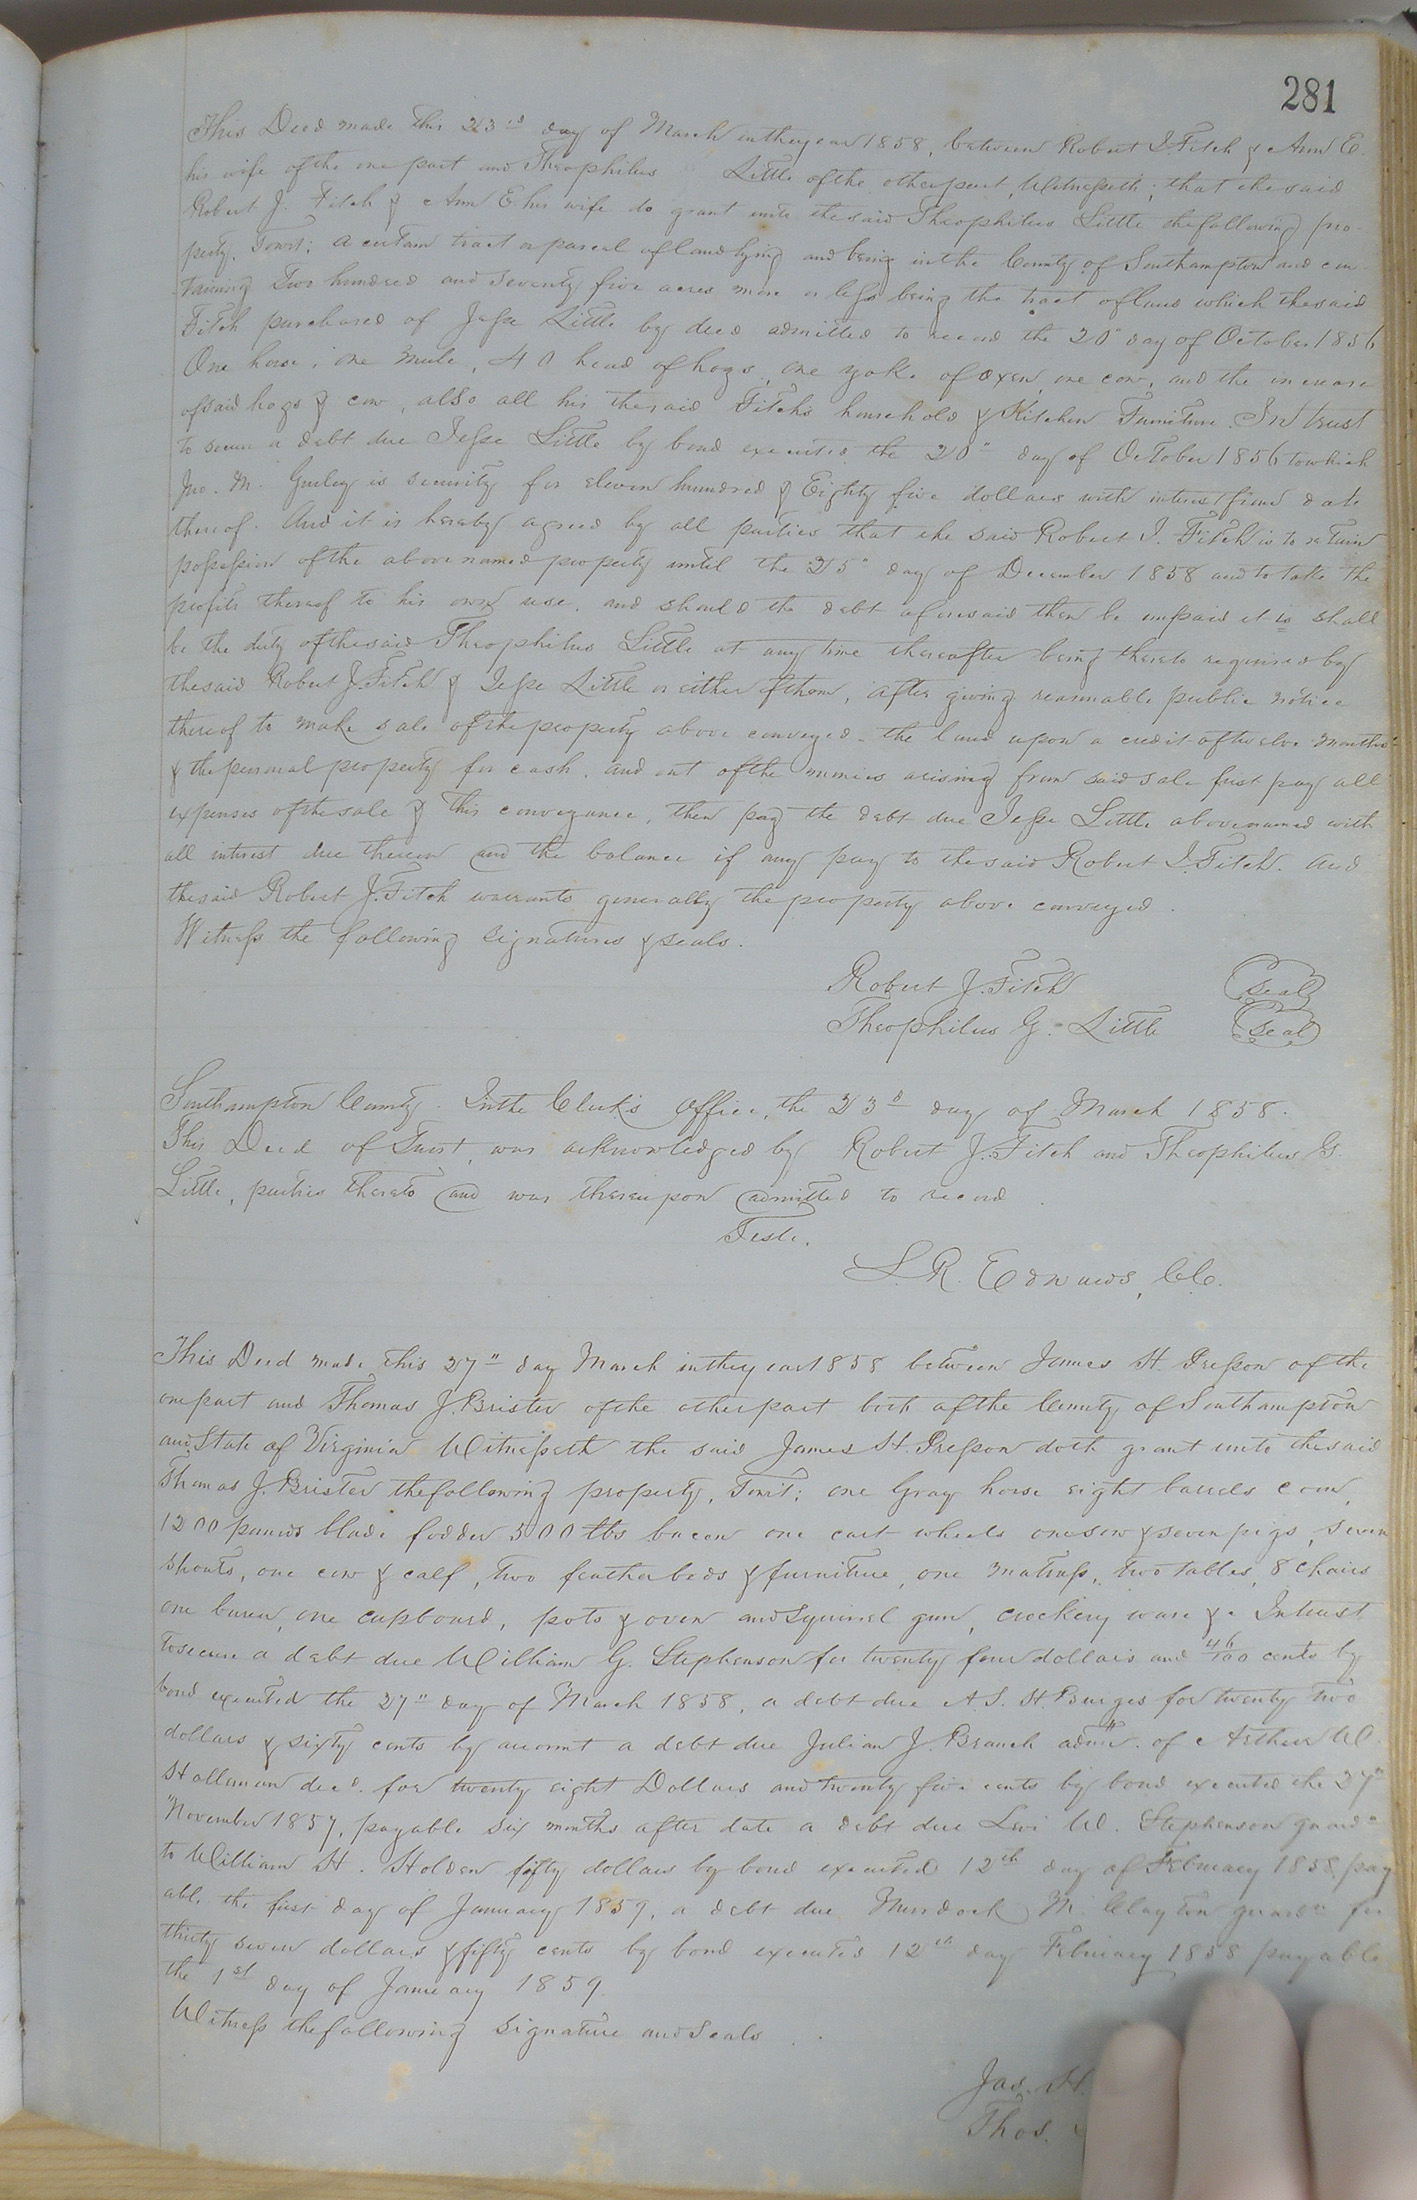 281
This Deed made this 23rd day of March in the year 1858, between Robert J. Fitch & Ann E.
his wife of the one part and Theophilus Little of the other part, Witnesseth; that the said
Robert J. Fitch & Ann E his wife do grant unto the said Theophilus Little the following pro-
perty, Towit; a certain tract or parcel of land lying and being in the County of Southampton and con-
taining Two hundred and seventy five acres more or less being the tract of land which the said
Fitch purchased of Jesse Little by deed admitted to record the 20" day of October 1856
One horse, one mule, 40 head of hogs, one yoke of oxen, one cow, and the increase
of said hogs & cow, also all his the said Fitch's household & Kitchen Furniture. In trust
to secure a debt due Jesse Little by bond executed the 20" day of October 1856 to which
Jno. M. Gurley is security for eleven hundred & Eighty five dollars with interest from date
thereof. And it is hereby agreed by all parties that the said Robert J. Fitch is to retain
possession of the above named property until the 25" day of December 1858 and to take the
profits thereof to his own use, and should the debt aforesaid then be unpaid it is shall
be the duty of the said Theophilus Little at any time thereafter being thereto required by
the said Robert J. Fitch & Jesse Little or either of them, after giving reasonable public notice
thereof to make sale of the property above conveyed - the land upon a credit of twelve months
& the personal property for cash, and out of the monies arising from said sale first pay all
expenses of the sale & this conveyance, then pay the debt due Jesse Little above named with
all interest due thereon and the balance if any pay to the said Robert J. Fitch. And
the said Robert J. Fitch warrants generally the property above conveyed.
Witness the following signatures & seals.
Robert J. Fitch seal
Theophilus G. Little seal
Southampton County. In the Clerk's Office, the 23d day of March 1858.
This Deed of Trust, was acknowledged by Robert J. Fitch and Theophilus G.
Little, parties thereto and was thereupon admitted to record.
Teste.
L. R. Edwards, Clk.
This Deed made this 27" day March in the year 1858 between James H. Presson of the
one part and Thomas J. Brister of the other part both of the County of Southampton
and State of Virginia Witnesseth the said James H. Presson doth grant unto the said
Thomas J. Brister the following property, Towit; one Gray horse eight barrels corn,
1200 pounds blade fodder 500 lbs bacon one cart wheels one sow & seven pigs, seven
shoats, one cow & calf, two feather beds & furniture, one matrass, two tables, 8 chairs
one bureau, one cupboard, pots & oven and squirrel gun, crockery ware &c In trust
to secure a debt due William G. Stephenson for twenty four dollars and 46/100 cents by
bond executed the 27" day of March 1858, a debt due A. S. H. Burges for twenty two
dollars & sixty cents by account a debt due Julian J. Branch admr. of Arthur W.
Holleman decd. for twenty eight Dollars and twenty five cents by bond executed the 27"
November 1857, payable six months after date a debt due Levi W. Stephenson guardn
to William H. Holden fifty dollars by bond executed 12th day of February 1858 pay
able the first day of January 1859, a debt due Murdock M. Clayton guardn for
thirty seven dollars & fifty cents by bond executed 12th day February 1858 payable
the 1st day of January 1859.
Witness the following signature and Seals
Jas. H.
Thos.